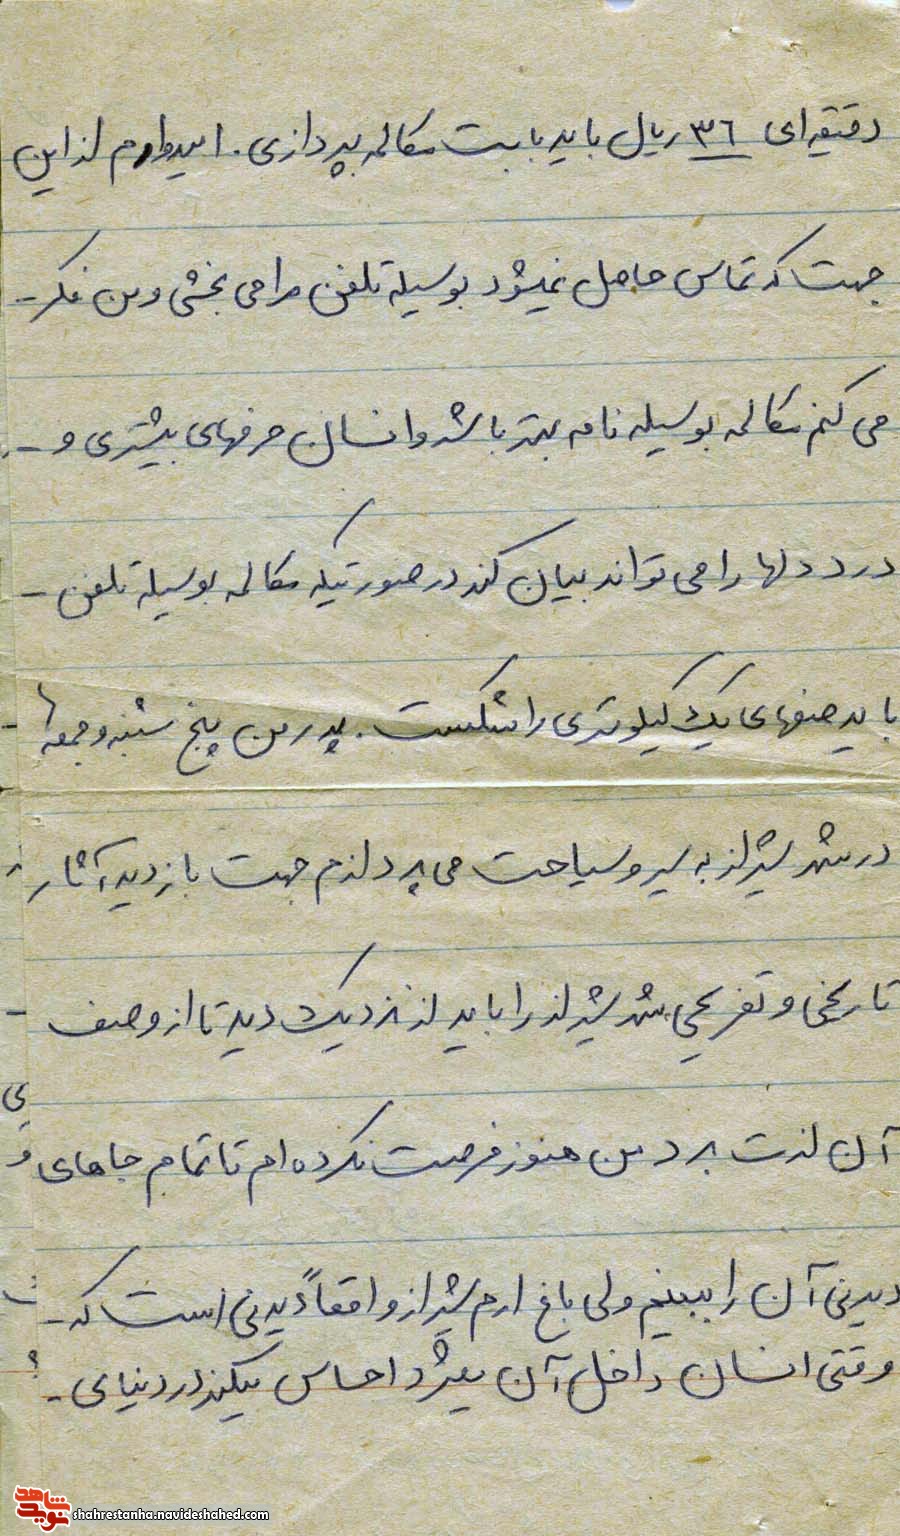 دقیقه‌ای ۳۶ ریال باید بابت مکالمه بپردازی. امیدوارم از این
جهت که تماس حاصل نمیشود بوسیله تلفن مرا می بخشی و من فکر -
می کنم مکالمه بوسیله نامه بهتر باشد و انسان حرفهای بیشتری و -
درد دلها را می تواند بیان کند در صورتیکه مکالمه بوسیله تلفن -
باید صفهای یک کیلومتری را شکست. پدر من پنج شنبه و جمعه ها
در شهر شیراز به سیر و سیاحت می پردازم جهت بازدید آثار
تاریخی و تفریحی شهر شیراز را باید از نزدیک دید تا از وصف
آن لذت برد من هنوز فرصت نکرده ام تا تمام جاهای
دیدنی آن را ببینم ولی باغ ارم شیراز واقعاً دیدنی است که -
وقتی انسان داخل آن میشود احساس میکند در دنیای -
نوید شاهد
shahrestanha.navideshahed.com